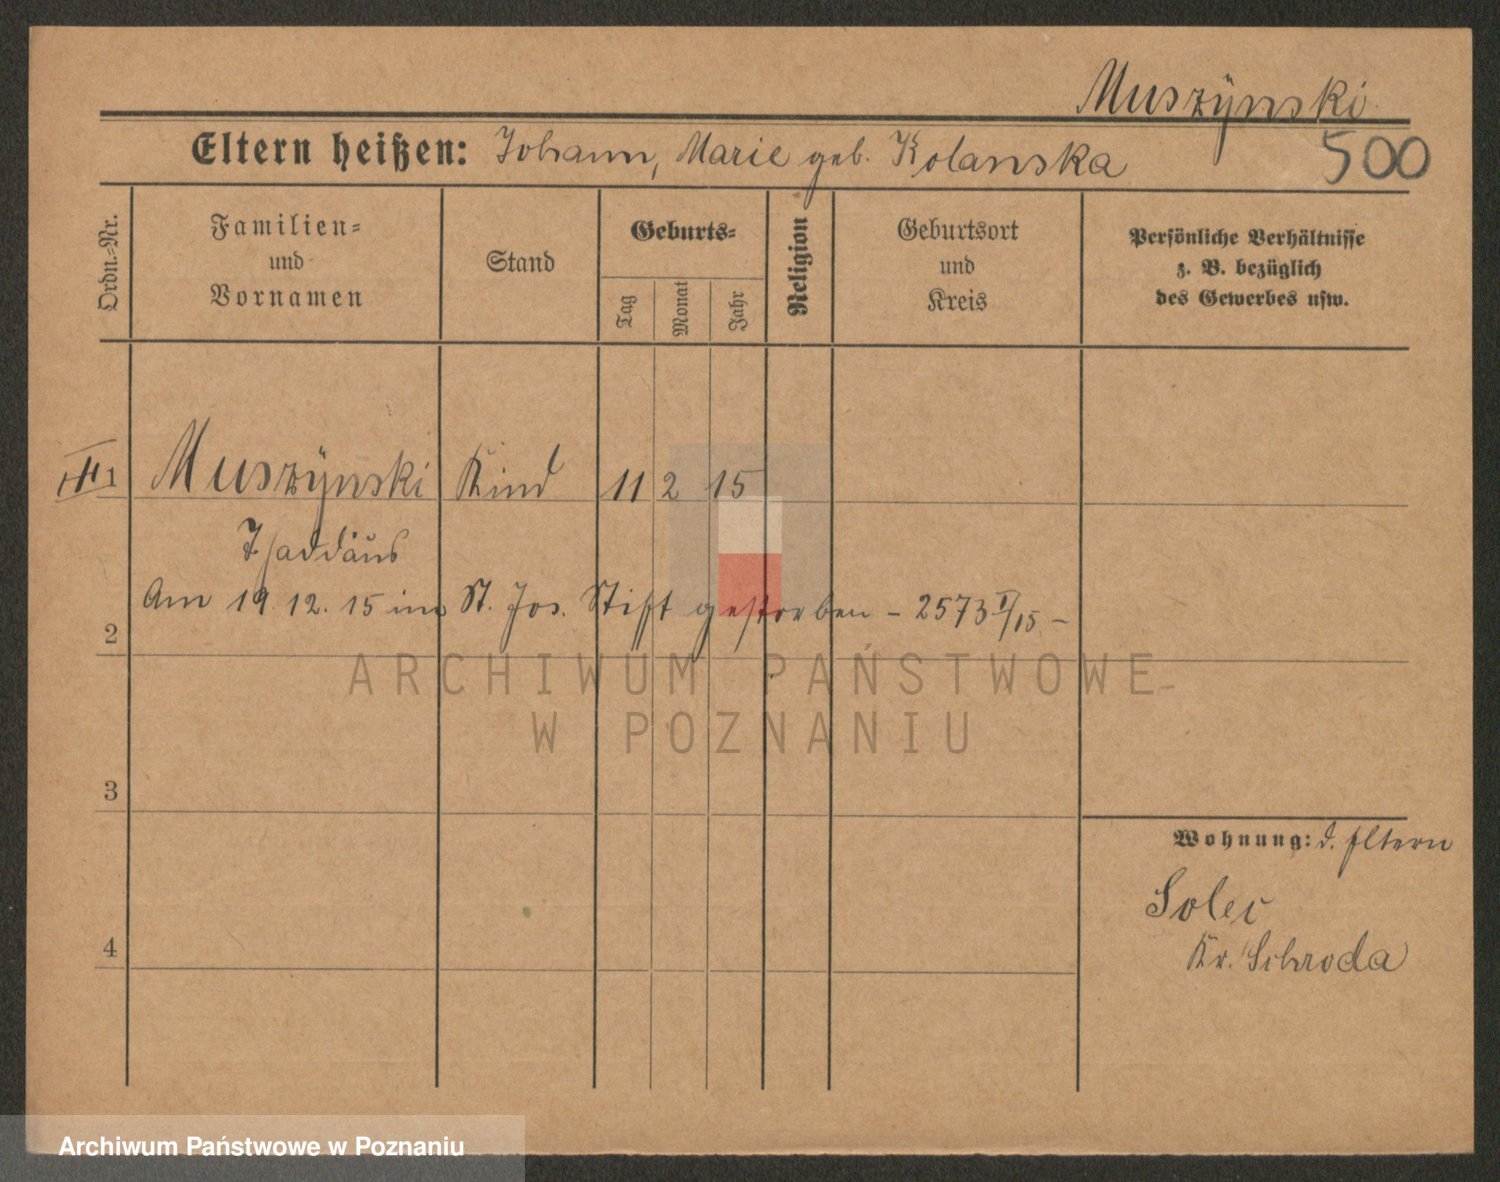 Muszÿnski
Eltern heißen: Johann, Marie geb. Kolanska 500
Ordn.-Nr.
Familien-
und
Vornamen
Stand
Geburts-
Tag
Monat
Jahr
Religion
Geburtsort
und
Kreis
Persönliche Verhältnisse
z. B. bezüglich
des Gewerbes usw.
III 1 Muszÿnski Kind 11 2 15
Thaddäus
Am 19. 12. 15 im St. Jos. Stift gestorben – 2573 I/15 –
2
ARCHIWUM PAŃSTWOWE
W POZNANIU
3
Wohnung: d. Eltern
Solec
Kr. Schroda
4
Archiwum Państwowe w Poznaniu